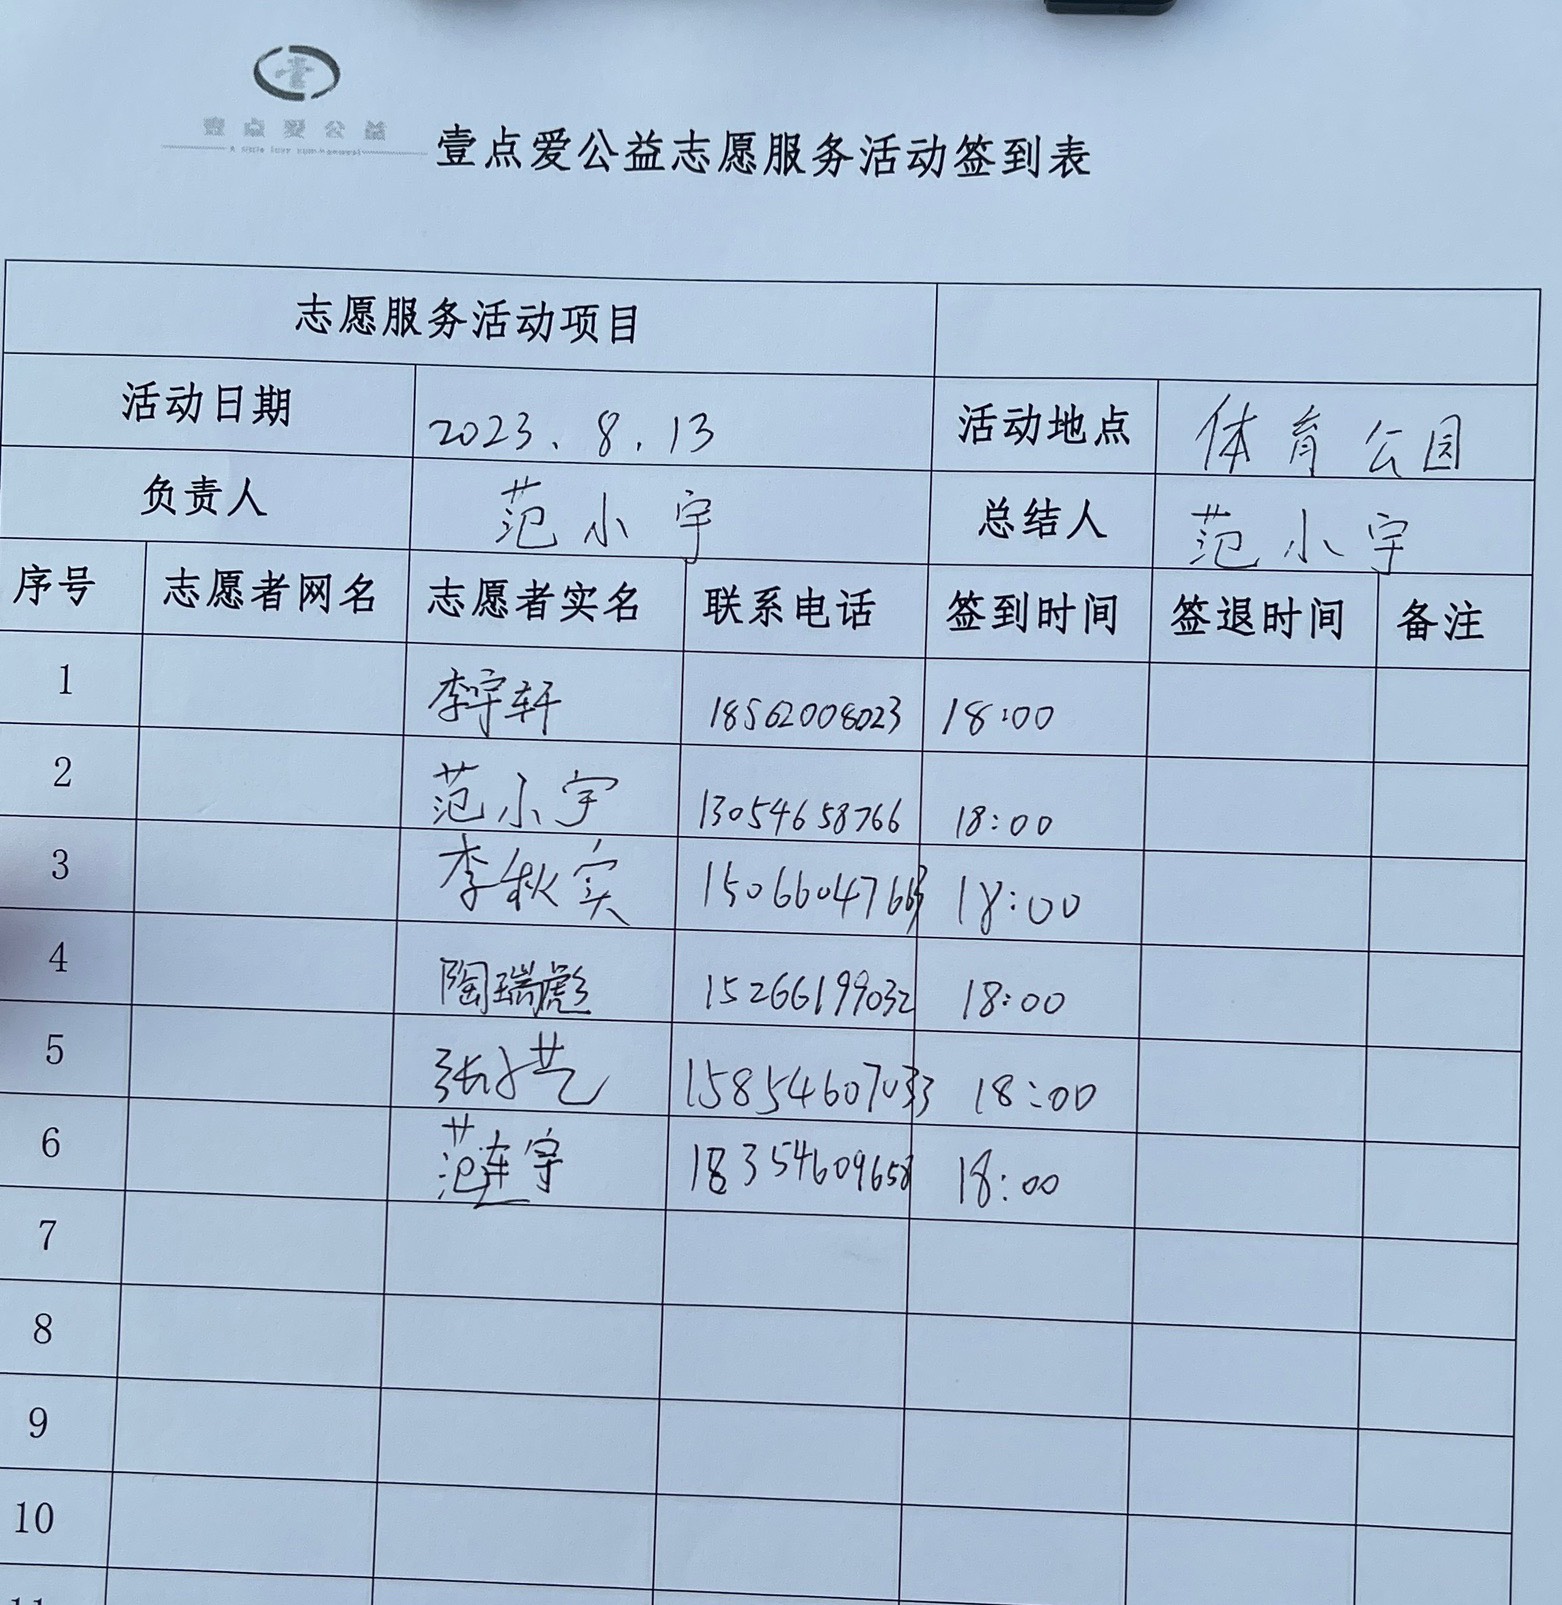 壹点爱公益
壹点爱公益志愿服务活动签到表
志愿服务活动项目
活动日期 2023.8.13 活动地点 体育公园
负责人 范小宇 总结人 范小宇
序号 志愿者网名 志愿者实名 联系电话 签到时间 签退时间 备注
1 李宇轩 18562008023 18:00
2 范小宇 13054658766 18:00
3 李秋实 18:00
4 陶瑞彪 15266199032 18:00
5 张小艺 15854607033 18:00
6 范连宇 18354609658 18:00
7
8
9
10
11